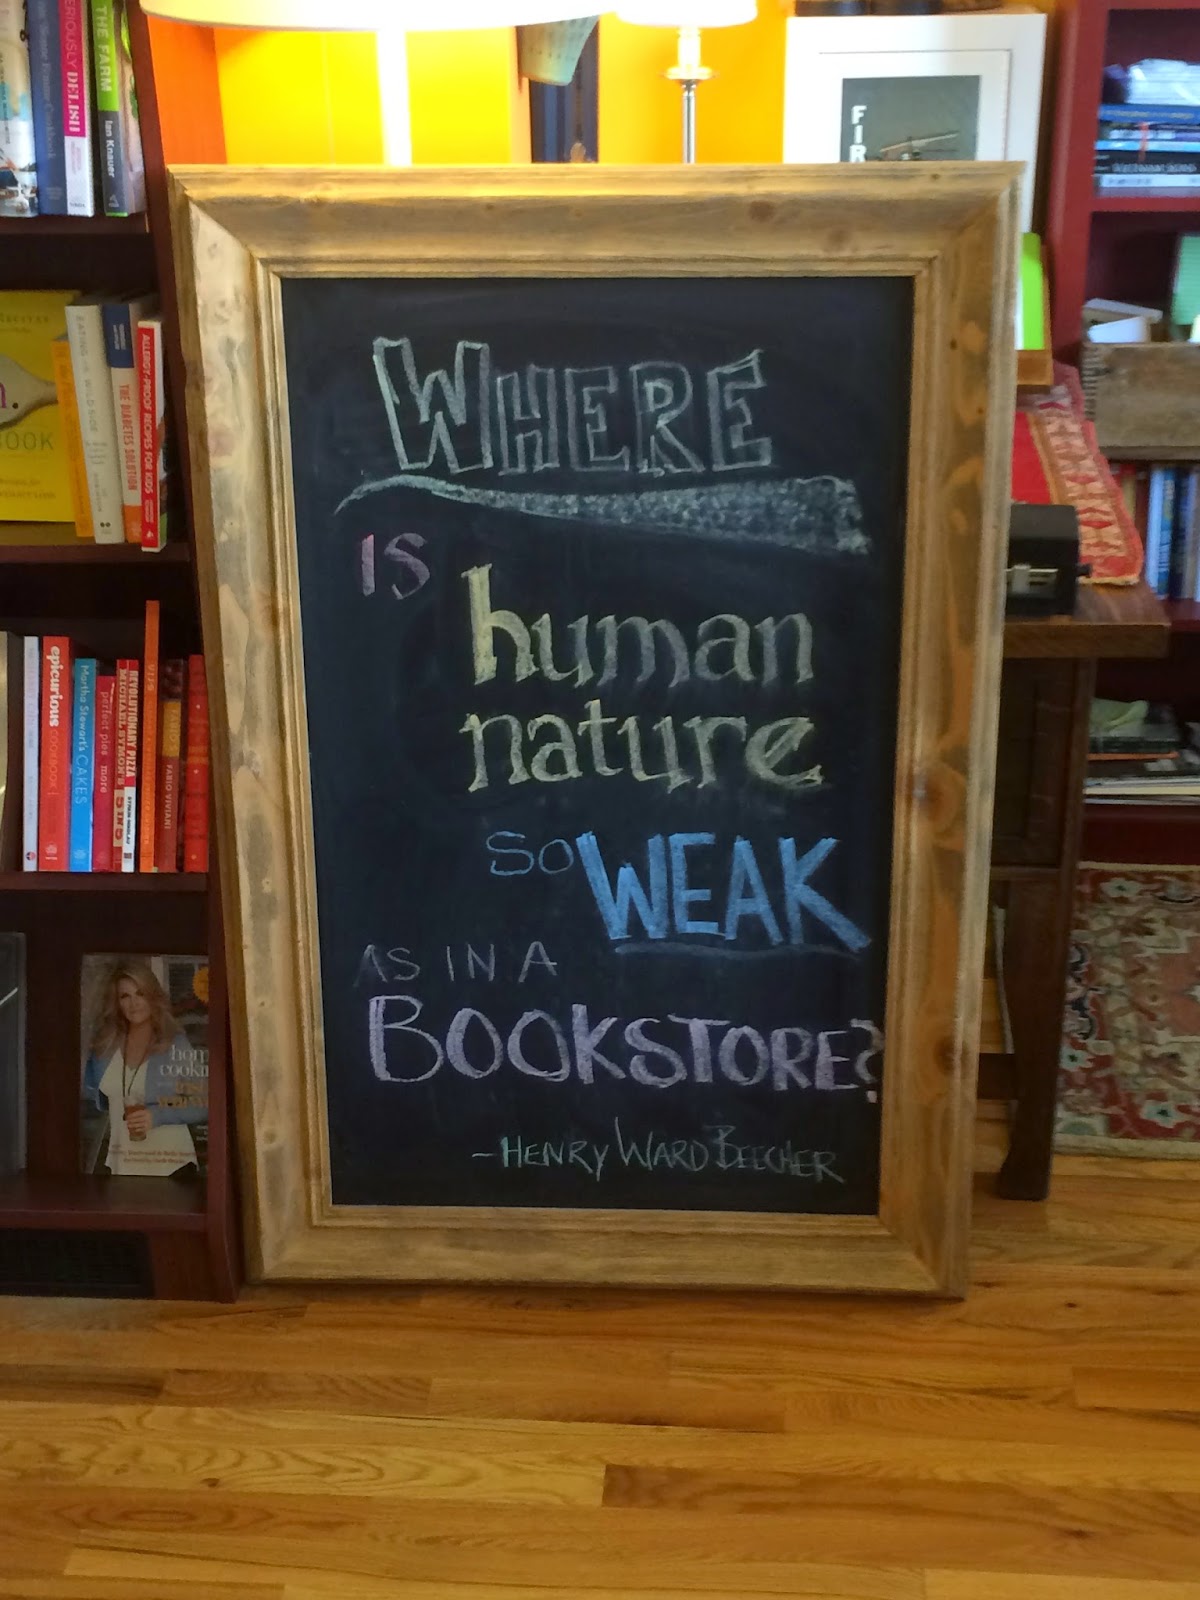 WHERE
IS
human
nature
SO WEAK
AS IN A
BOOKSTORE?
- HENRY WARD BEECHER
SERIOUSLY DELISH
THE FARM
Ian Knauer
BOOK
EATING ON THE WILD SIDE
THE DIABETES SOLUTION
ALLERGY-PROOF RECIPES FOR KIDS
epicurious COOKBOOK
Martha Stewart's CAKES
perfect pies & more
REVOLUTIONARY PIZZA
MICHAEL SYMON'S
5 IN 5
FABIO VIVIANI
home
cooking
FIR